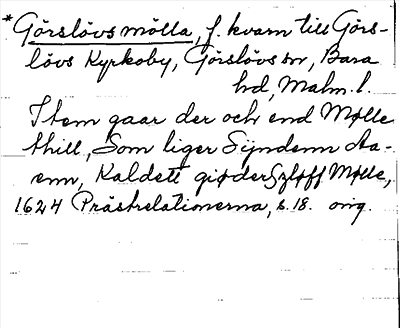 *Görslövs mölla, f. kvarn till Görs-
lövs Kyrkoby, Görslövs sn, Bara
hd, Malm. l.
Item gaar der och end Mølle
thill, Som liger Sÿndenn Aa-
enn, Kaldett giøderSzløff Mølle,
1624 Prästrelationerna, s. 18. orig.